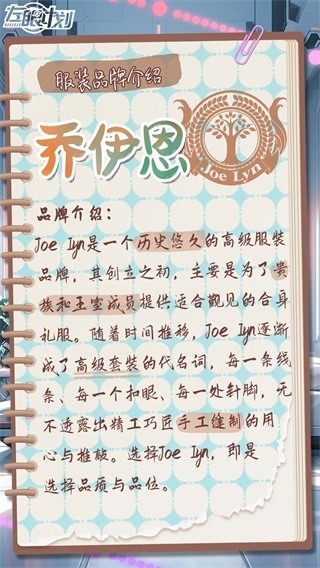 左眼计划
服装品牌介绍
乔伊恩
Joe Lyn
品牌介绍：
Joe Iyn是一个历史悠久的高级服装
品牌，其创立之初，主要是为了贵
族和王室成员提供适合觐见的合身
礼服。随着时间推移，Joe Iyn逐渐
成了高级套装的代名词，每一条线
条、每一个扣眼、每一处针脚，无
不透露出精工巧匠手工缝制的用
心与推敲。选择Joe Iyn，即是
选择品质与品位。